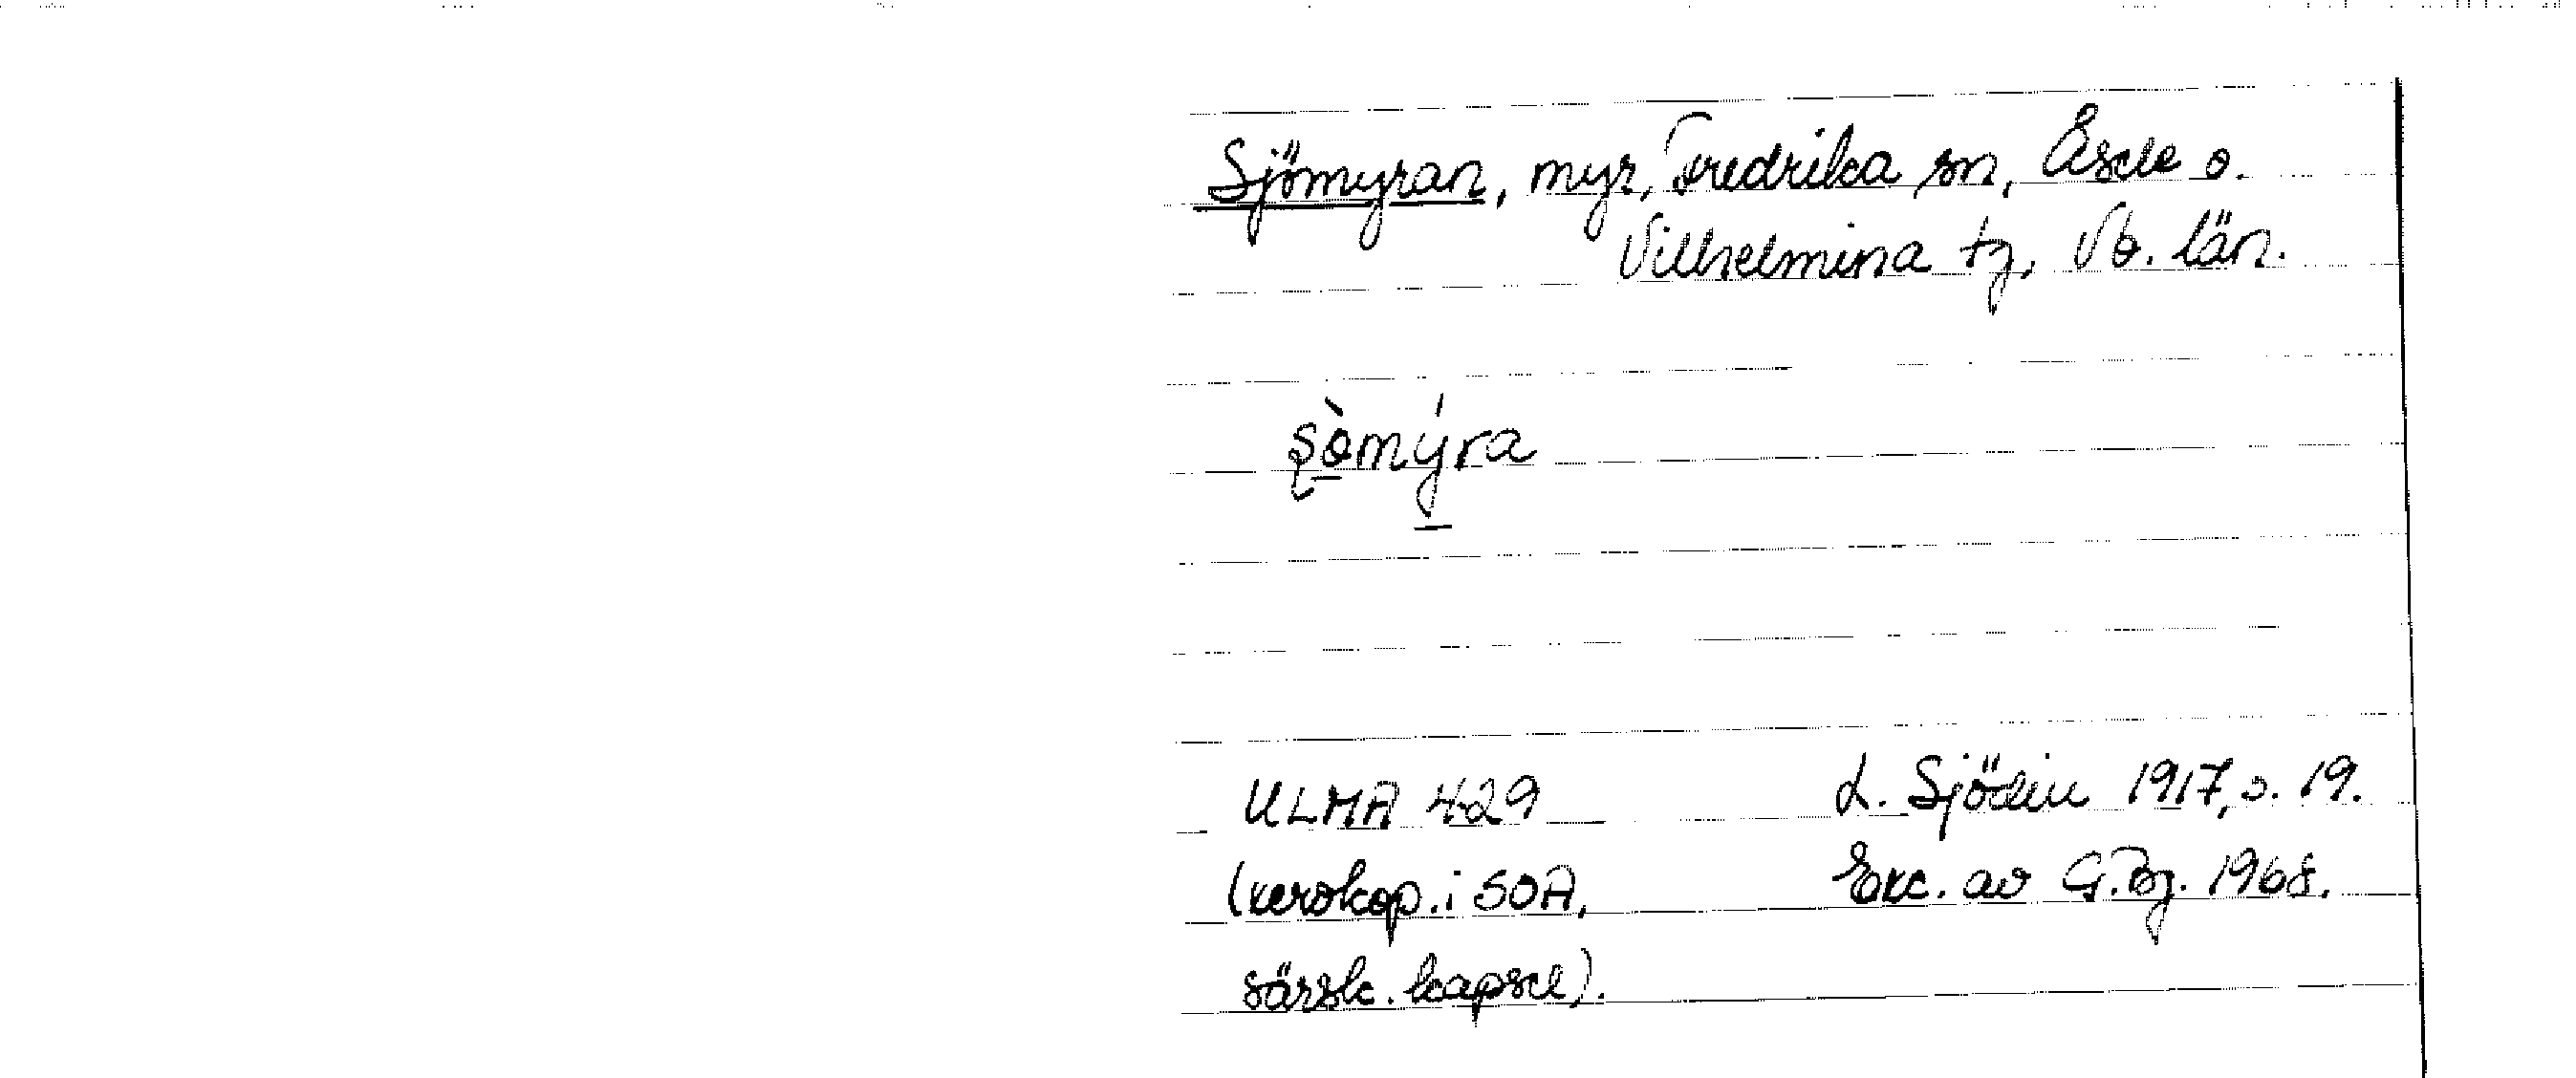 Sjömyran, myr, Fredrika sn, Åsele o.
Vilhelmina tg, Vb. län.
ʂò̱mý̱ra
ULMA 429
(xerokop. i SOA,
särsk. kapsel).
L. Sjödin 1917, s. 19.
Exc. av G. Bg. 1968.